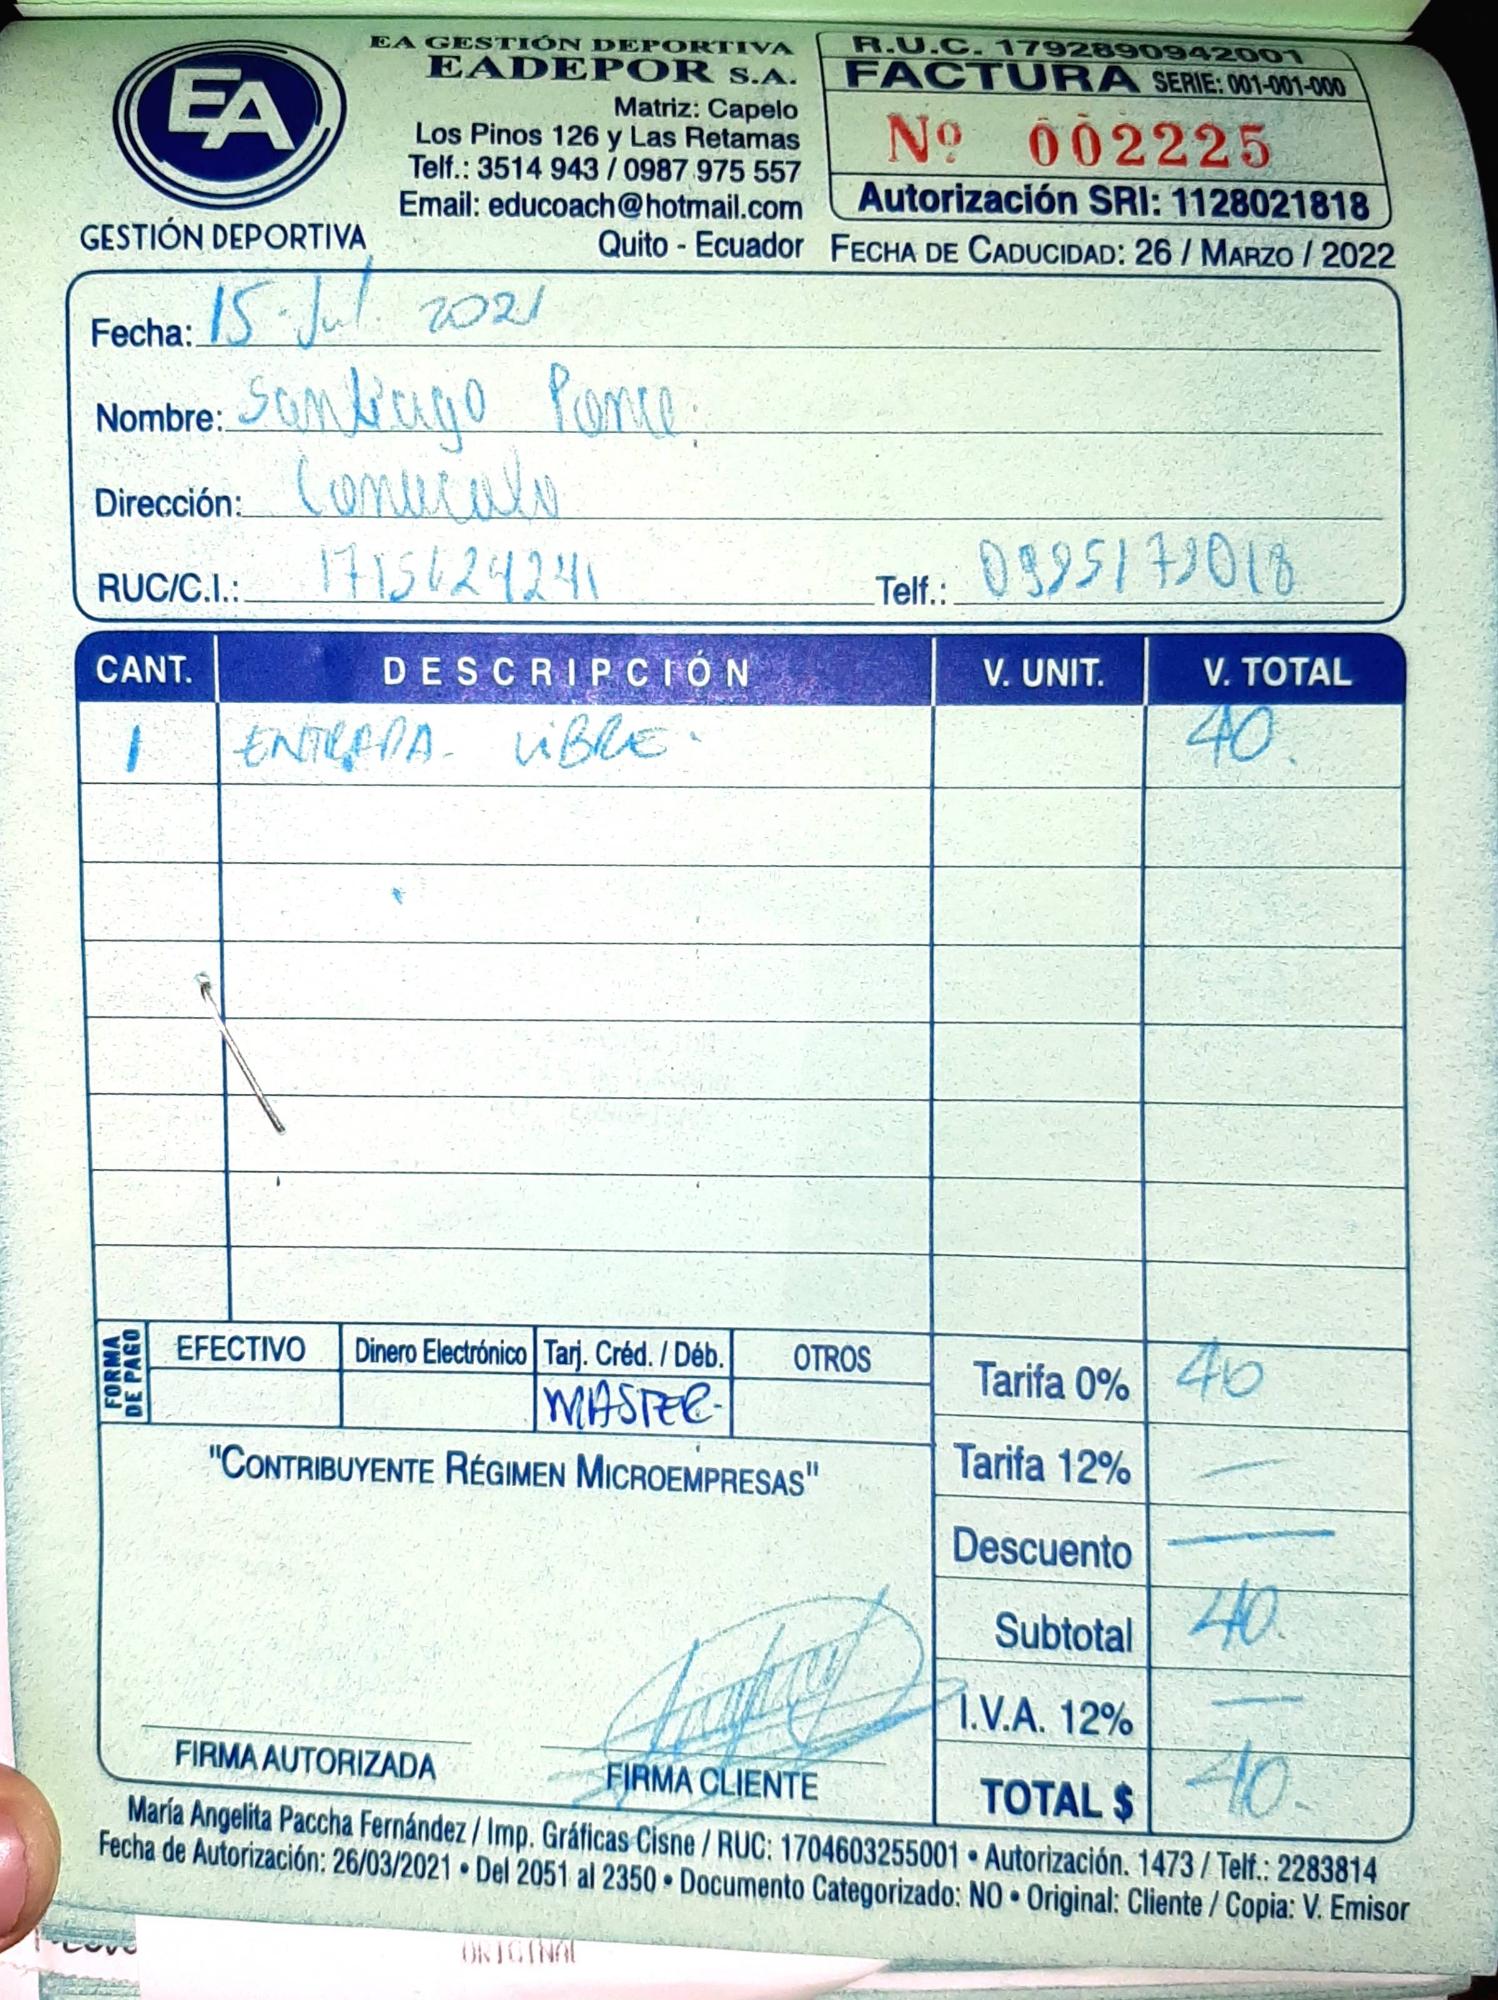 EA
GESTIÓN DEPORTIVA
EA GESTIÓN DEPORTIVA
EADEPOR S.A.
Matriz: Capelo
Los Pinos 126 y Las Retamas
Telf.: 3514 943 / 0987 975 557
Email: educoach@hotmail.com
Quito - Ecuador
R.U.C. 1792890942001
FACTURA SERIE: 001-001-000
Nº 002225
Autorización SRI: 1128021818
FECHA DE CADUCIDAD: 26 / MARZO / 2022
Fecha: 15 Jul. 2021
Nombre: Santiago Ponce
Dirección:
RUC/C.I.: 1715624241 Telf.: 0995179018
CANT. DESCRIPCIÓN V. UNIT. V. TOTAL
1 ENTRADA LIBRE. 40.
FORMA DE PAGO
EFECTIVO Dinero Electrónico Tarj. Créd. / Déb. OTROS
MASTER
Tarifa 0% 40
Tarifa 12% —
Descuento —
Subtotal 40.
I.V.A. 12% —
TOTAL $ 40.
"CONTRIBUYENTE RÉGIMEN MICROEMPRESAS"
FIRMA AUTORIZADA FIRMA CLIENTE
María Angelita Paccha Fernández / Imp. Gráficas Cisne / RUC: 1704603255001 • Autorización. 1473 / Telf.: 2283814
Fecha de Autorización: 26/03/2021 • Del 2051 al 2350 • Documento Categorizado: NO • Original: Cliente / Copia: V. Emisor
ORIGINAL